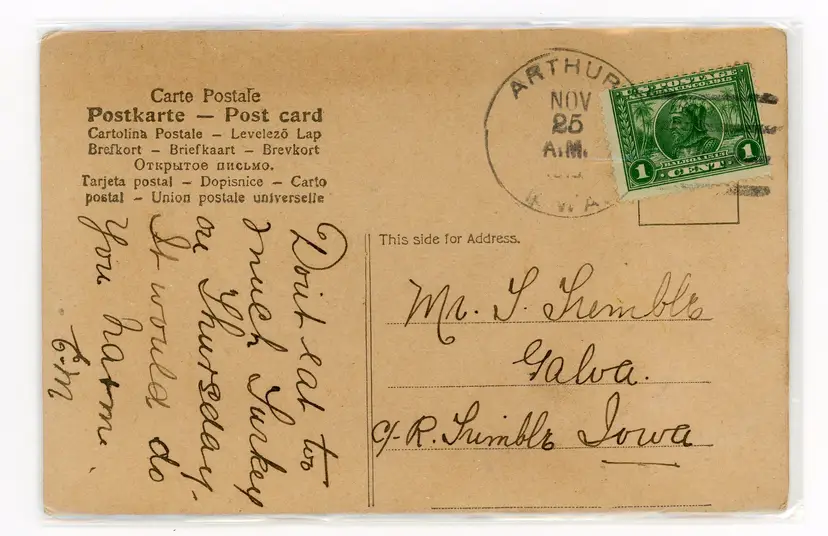 Carte Postale
Postkarte — Post card
Cartolina Postale – Levelező Lap
Brefkort – Briefkaart – Brevkort
Открытое письмо.
Tarjeta postal – Dopisnice – Carto
postal – Union postale universelle
Don't eat too
much Turkey
on Thursday.
It would do
you harm.
E-M
ARTHUR
NOV
25
A.M.
U.S. POSTAGE
SAN FRANCISCO 1915
BALBOA 1513
1 CENT 1
This side for Address.
Mr. T. Trimble
Galva.
c/- R. Trimble Iowa